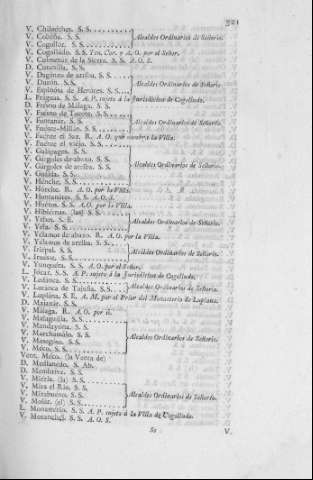 321
V. Chiloeches. S. S.
V. Cobeña. S. S.
Alcaldes Ordinarios de Señorío.
V. Cogollor. S. S.
V. Cogolludo. S. S. Ten. Cor. y A. O. por el Señor.
V. Colmenar de la Sierra. S. S. A. O. S.
D. S. S.
V. Daganzo de arriba. S. S.
V. Duron. S. S.
Alcaldes Ordinarios de Señorío.
V. Espinosa de Henares. S. S.
L. Fraguas. S. S. A. P. sujeto á la Jurisdiccion de Cogolludo.
D. Fresno de Málaga. S. S.
V. Fresno de Torote. S. S.
V. Fontanar. S. S.
Alcaldes Ordinarios de Señorío.
V. Fuente-Millan. S. S.
V. Fuente el Saz. R. A. O. que nombra la Villa.
V. Fuente el viejo. S. S.
V. Galápagos. S. S.
V. Gárgoles de abaxo. S. S.
V. Gárgoles de arriba. S. S.
Alcaldes Ordinarios de Señorío.
V. S. S.
V. Henche. S. S.
V. R. A. O. por la Villa.
V. Humanes. S. S. A. O. S.
V. S. S. A. O. por la Villa.
V. (las) S. S.
V. S. E.
Alcaldes Ordinarios de Señorío.
V. S. S.
V. Yélamos de abaxo. R. A. O. por la Villa.
V. Yélamos de arriba. S. S.
V. Iriépal. S. S.
Alcaldes Ordinarios de Señorío.
V. Irueste. S. S.
V. Yunquera. S. S. A. O. por el Señor.
L. Jócar. S. S. A. P. sujeto á la Jurisdiccion de Cogolludo.
V. Ledanca. S. S.
V. Loranca de Tajuña. S. S.
Alcaldes Ordinarios de Señorío.
V. Lupiana. S. E. A. M. por el Prior del Monasterio de Lupiana.
D. S. S.
V. Málaga. R. A. O. por íí.
V. Malaguilla. S. S.
V. Mandayona. S. S.
V. Marchamalo. S. S.
Alcaldes Ordinarios de Señorío.
V. Masegoso. S. S.
V. Meco. S. S.
Vent. Meco. (la Venta de)
D. Medianedo. S. Ab.
D. S. S.
V. Mierla. (la) S. S.
V. Mira el Rio. S. S.
V. Mirabueno. S. S.
Alcaldes Ordinarios de Señorío.
V. (el) S. S.
L. Monasterio. S. S. A. P. sujeto á la Villa de Cogolludo.
V. S. S. A. O. S.
Ss
V.